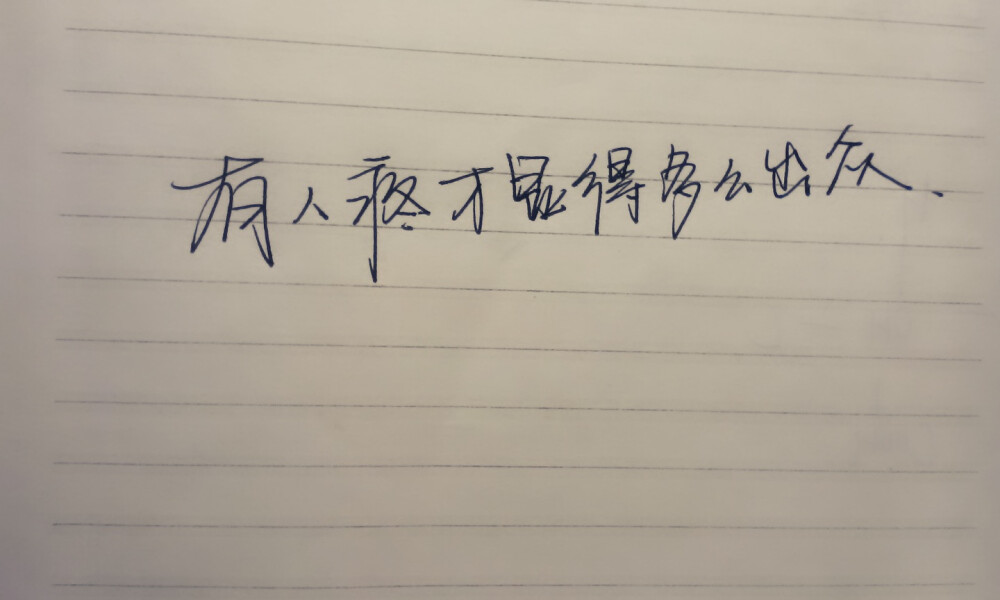 有人疼才显得多么出众、